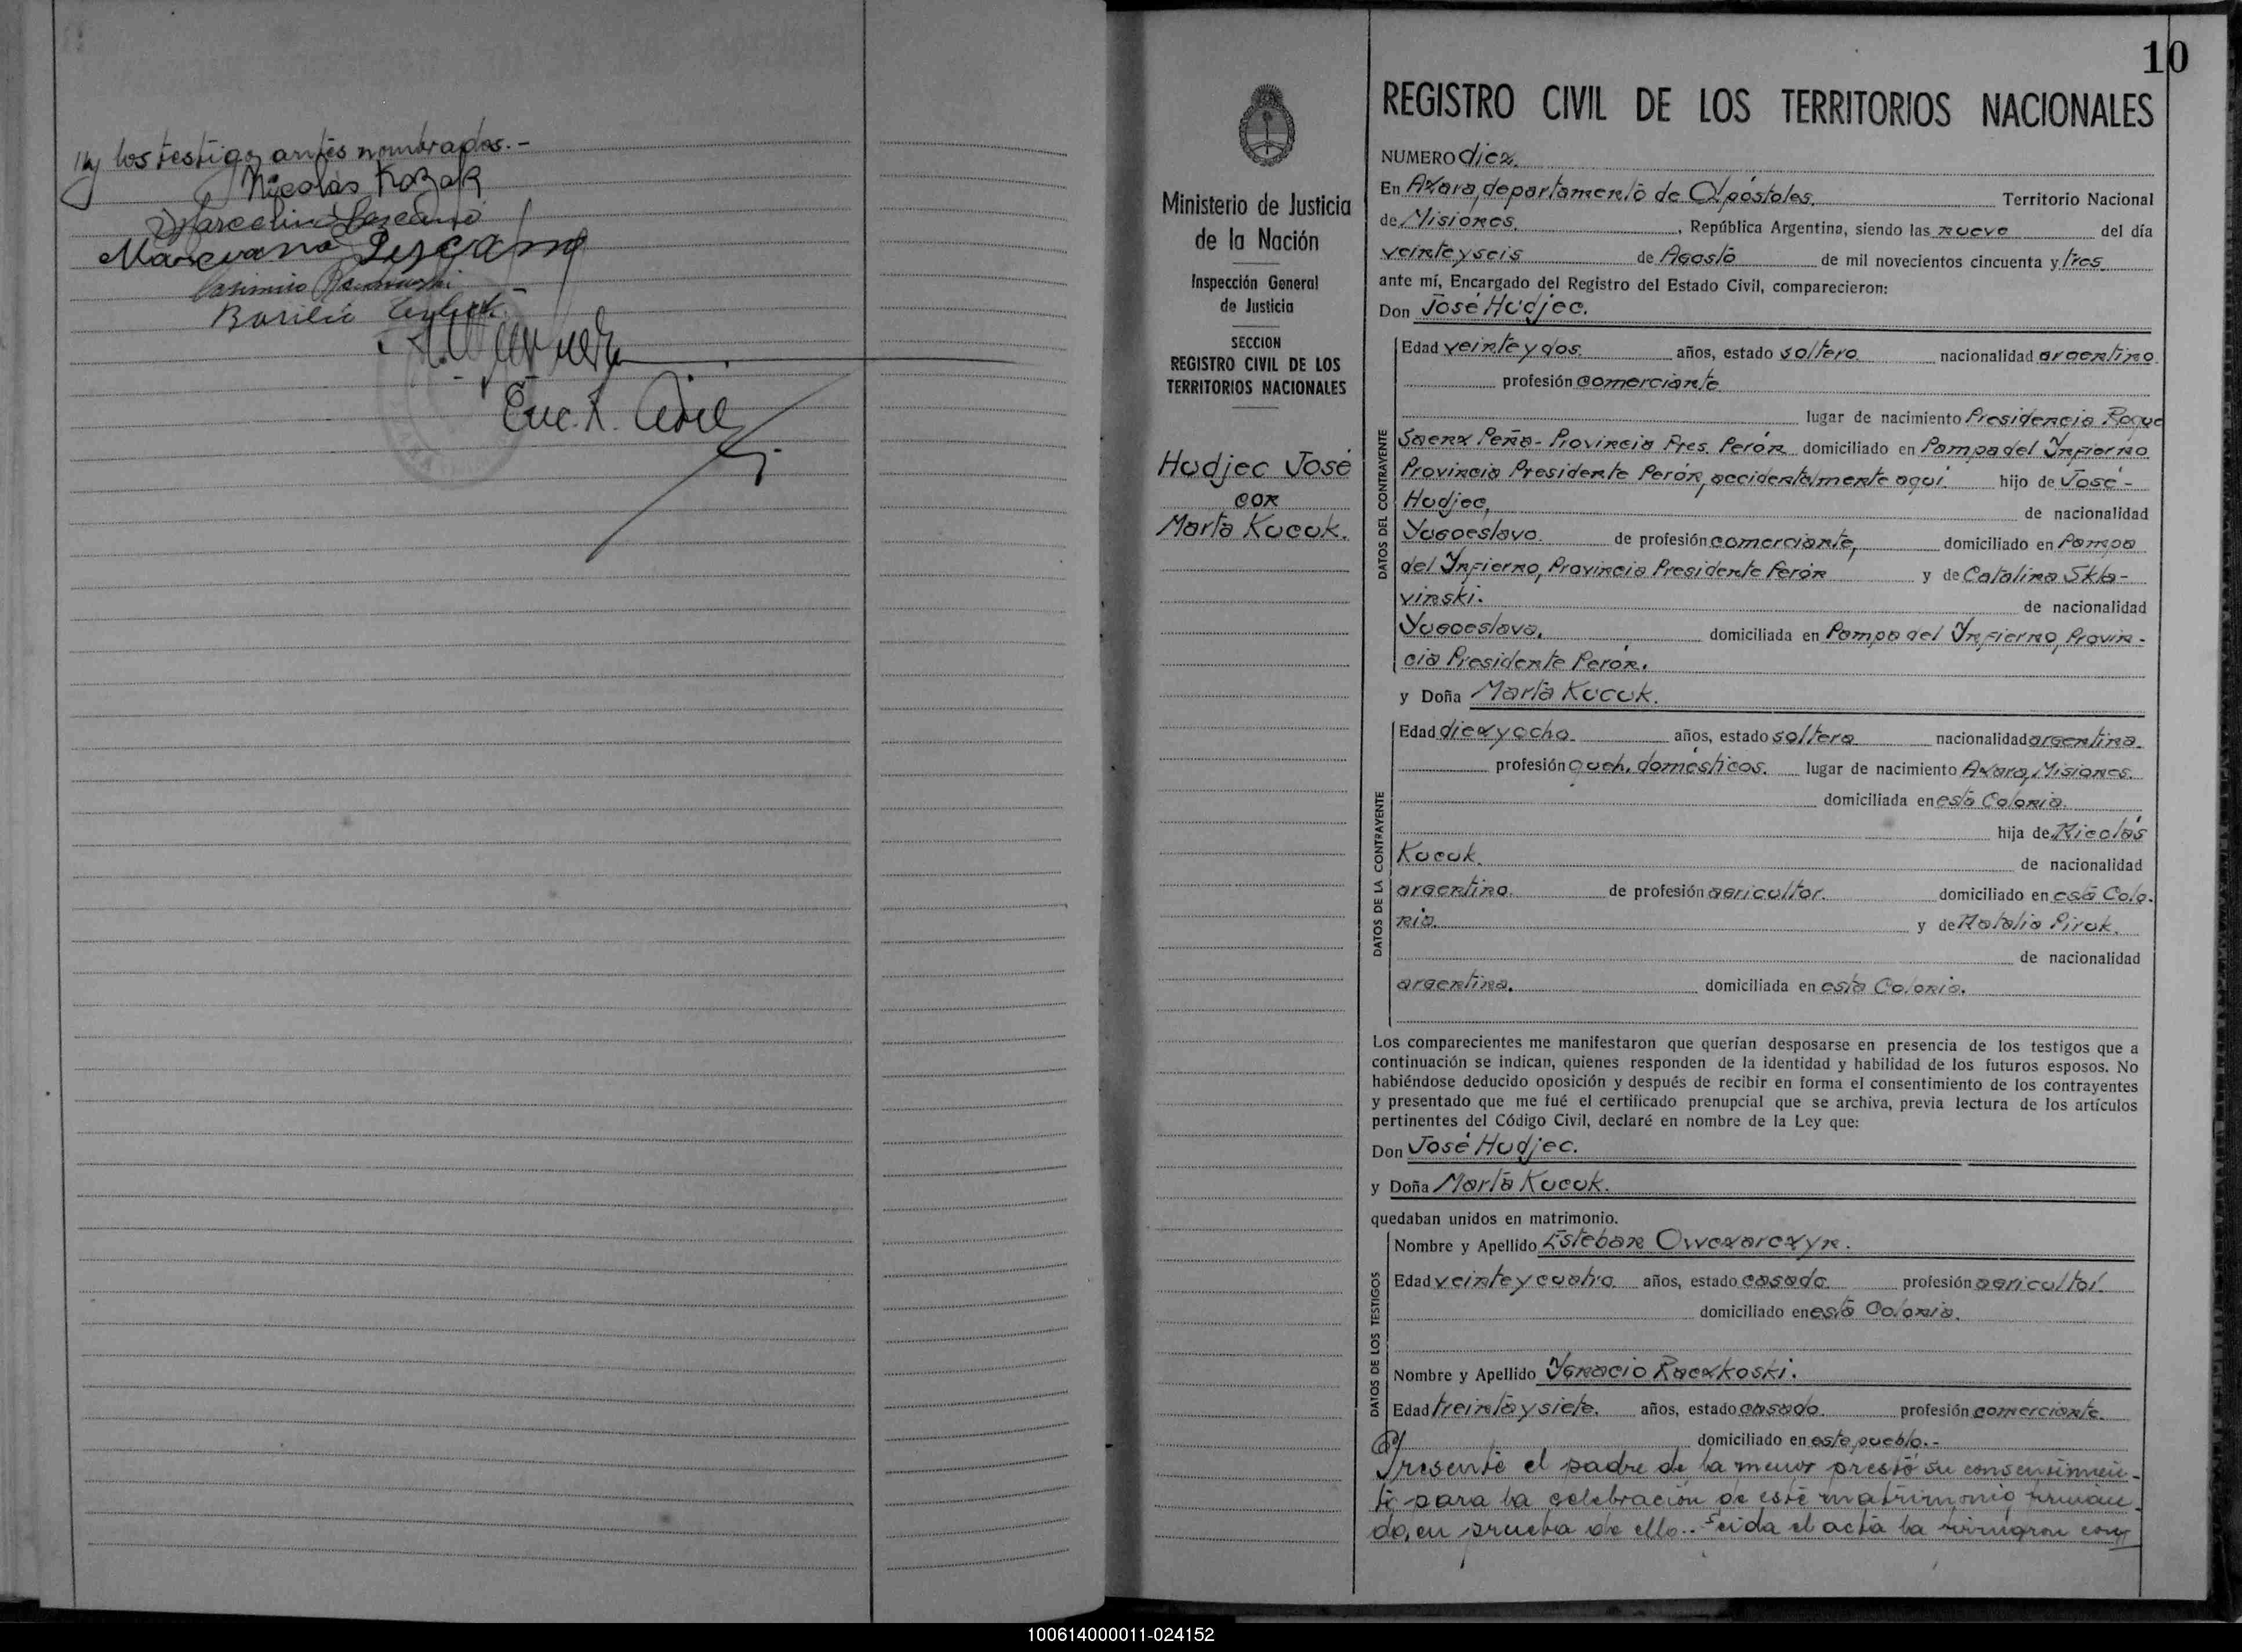 y los testigos antés nombrados.-
Nicolás Kozak
Marcelino Lezcano
Marciana Lezcano
Casimiro
Basilio
Enc. R. Civil
10
Ministerio de Justicia
de la Nación
Inspección General
de Justicia
SECCION
REGISTRO CIVIL DE LOS
TERRITORIOS NACIONALES
Hudjec José
con
Marta Kucuk.
REGISTRO CIVIL DE LOS TERRITORIOS NACIONALES
NUMERO diez.
En Azara, departamento de Apóstoles. Territorio Nacional
de Misiones. , República Argentina, siendo las nueve del día
veinte y seis de Agosto de mil novecientos cincuenta y tres
ante mí, Encargado del Registro del Estado Civil, comparecieron:
Don José Hudjec.
DATOS DEL CONTRAYENTE
Edad veinte y dos. años, estado soltero nacionalidad argentino
profesión comerciante
lugar de nacimiento Presidencia Roque
Saenz Peña- Provincia Pres. Perón domiciliado en Pampa del Infierno
Provincia Presidente Perón, accidentalmente aquí. hijo de José-
Hudjec, de nacionalidad
Yugoeslavo. de profesión comerciante, domiciliado en Pampa
del Infierno, Provincia Presidente Perón y de Catalina Skla-
vinski. de nacionalidad
Yugoeslava. domiciliada en Pampa del Infierno, Provin-
cia Presidente Perón.
y Doña Marta Kucuk.
DATOS DE LA CONTRAYENTE
Edad diez y ocho años, estado soltera nacionalidad argentina.
profesión queh. domésticos. lugar de nacimiento Azara, Misiones.
domiciliada en esta Colonia.
hija de Nicolás
Kucuk. de nacionalidad
argentino. de profesión agricultor. domiciliado en esta Colo.
nia. y de Natalia Piruk.
de nacionalidad
argentina. domiciliada en esta Colonia.
Los comparecientes me manifestaron que querían desposarse en presencia de los testigos que a
continuación se indican, quienes responden de la identidad y habilidad de los futuros esposos. No
habiéndose deducido oposición y después de recibir en forma el consentimiento de los contrayentes
y presentado que me fué el certificado prenupcial que se archiva, previa lectura de los artículos
pertinentes del Código Civil, declaré en nombre de la Ley que:
Don José Hudjec.
y Doña Marta Kucuk.
quedaban unidos en matrimonio.
DATOS DE LOS TESTIGOS
Nombre y Apellido Esteban Owczarczyn.
Edad veinte y cuatro años, estado casado profesión agricultor.
domiciliado en esta Colonia.
Nombre y Apellido Ygnacio Raczkoski.
Edad treinta y siete. años, estado casado. profesión comerciante.
domiciliado en este pueblo.-
Presente el padre de la menor prestó su consentimien-
to para la celebración de este matrimonio firmán
do, en prueba de ello.. Leida el acta la firmaron con
100614000011-024152